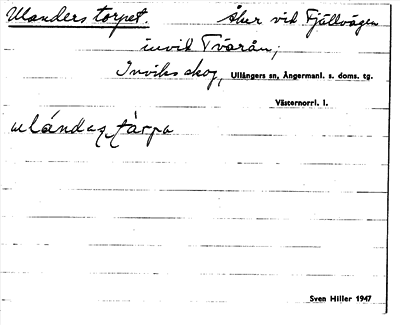 Ulanders torpet. Åker vid Fjällvägen
invid Tvärån;
Inviks skog, Ullångers sn, Ångermanl. s. doms. tg.
Västernorrl. l.
Sven Hiller 1947